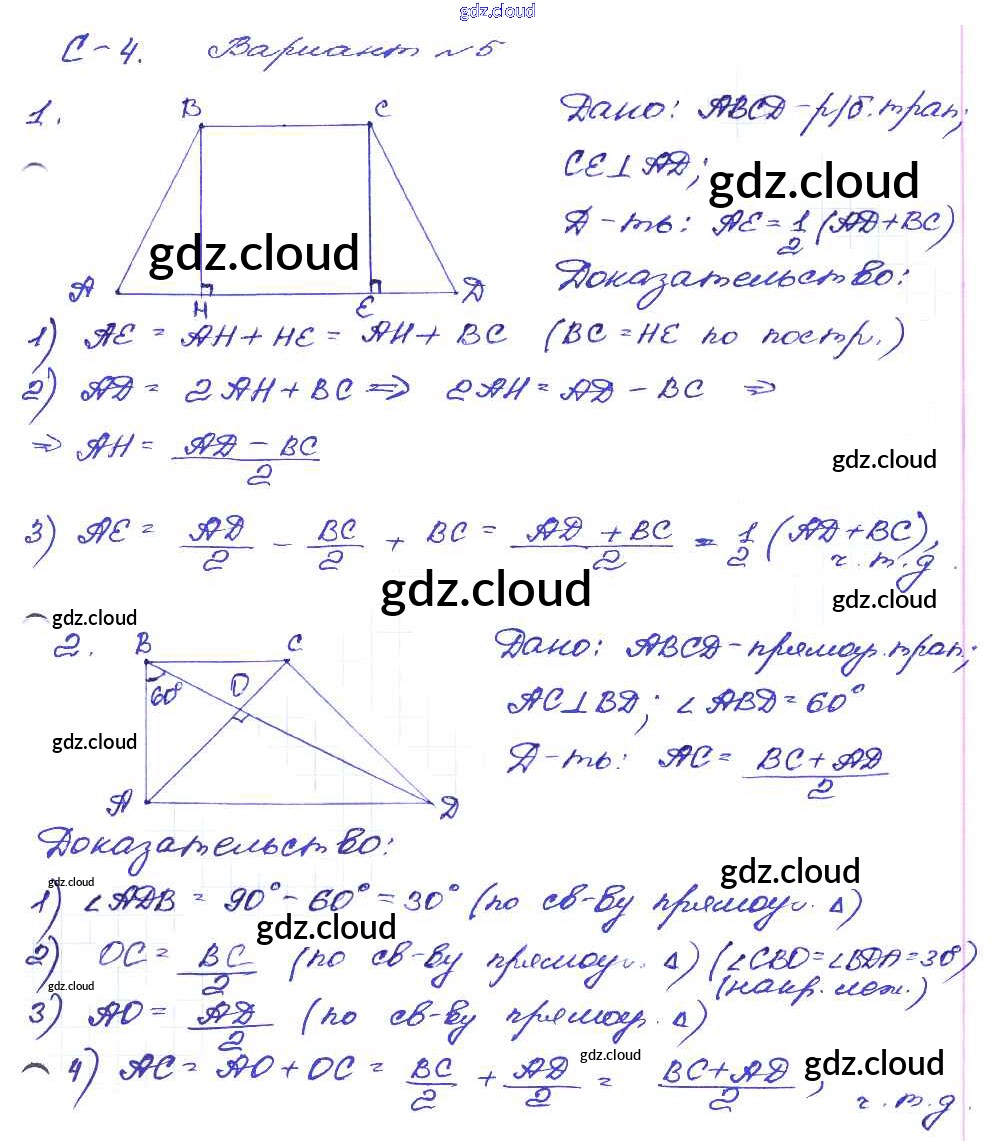 gdz.cloud
С-4. Вариант №5
1.
B C
A H E D
Дано: ABCD - р/б. трап;
CE ⊥ AD;
gdz.cloud
Д-ть: AE = 1/2 (AD + BC)
gdz.cloud
Доказательство:
1) AE = AH + HE = AH + BC (BC = HE по постр.)
2) AD = 2AH + BC ⇒ 2AH = AD - BC ⇒
⇒ AH = (AD - BC)/2
gdz.cloud
3) AE = AD/2 - BC/2 + BC = (AD + BC)/2 = 1/2 (AD + BC), ч.т.д.
gdz.cloud
gdz.cloud
gdz.cloud
2.
B C
60° O
A D
gdz.cloud
Дано: ABCD - прямоуг. трап;
AC ⊥ BD; ∠ABD = 60°
Д-ть: AC = (BC + AD)/2
Доказательство:
gdz.cloud
gdz.cloud
1) ∠ADB = 90° - 60° = 30° (по св-ву прямоуг. Δ)
gdz.cloud
2) OC = BC/2 (по св-ву прямоуг. Δ) (∠CBD = ∠BDA = 30°)
(накр. леж.)
gdz.cloud
3) AO = AD/2 (по св-ву прямоуг. Δ)
gdz.cloud
gdz.cloud
4) AC = AO + OC = BC/2 + AD/2 = (BC + AD)/2, ч.т.д.